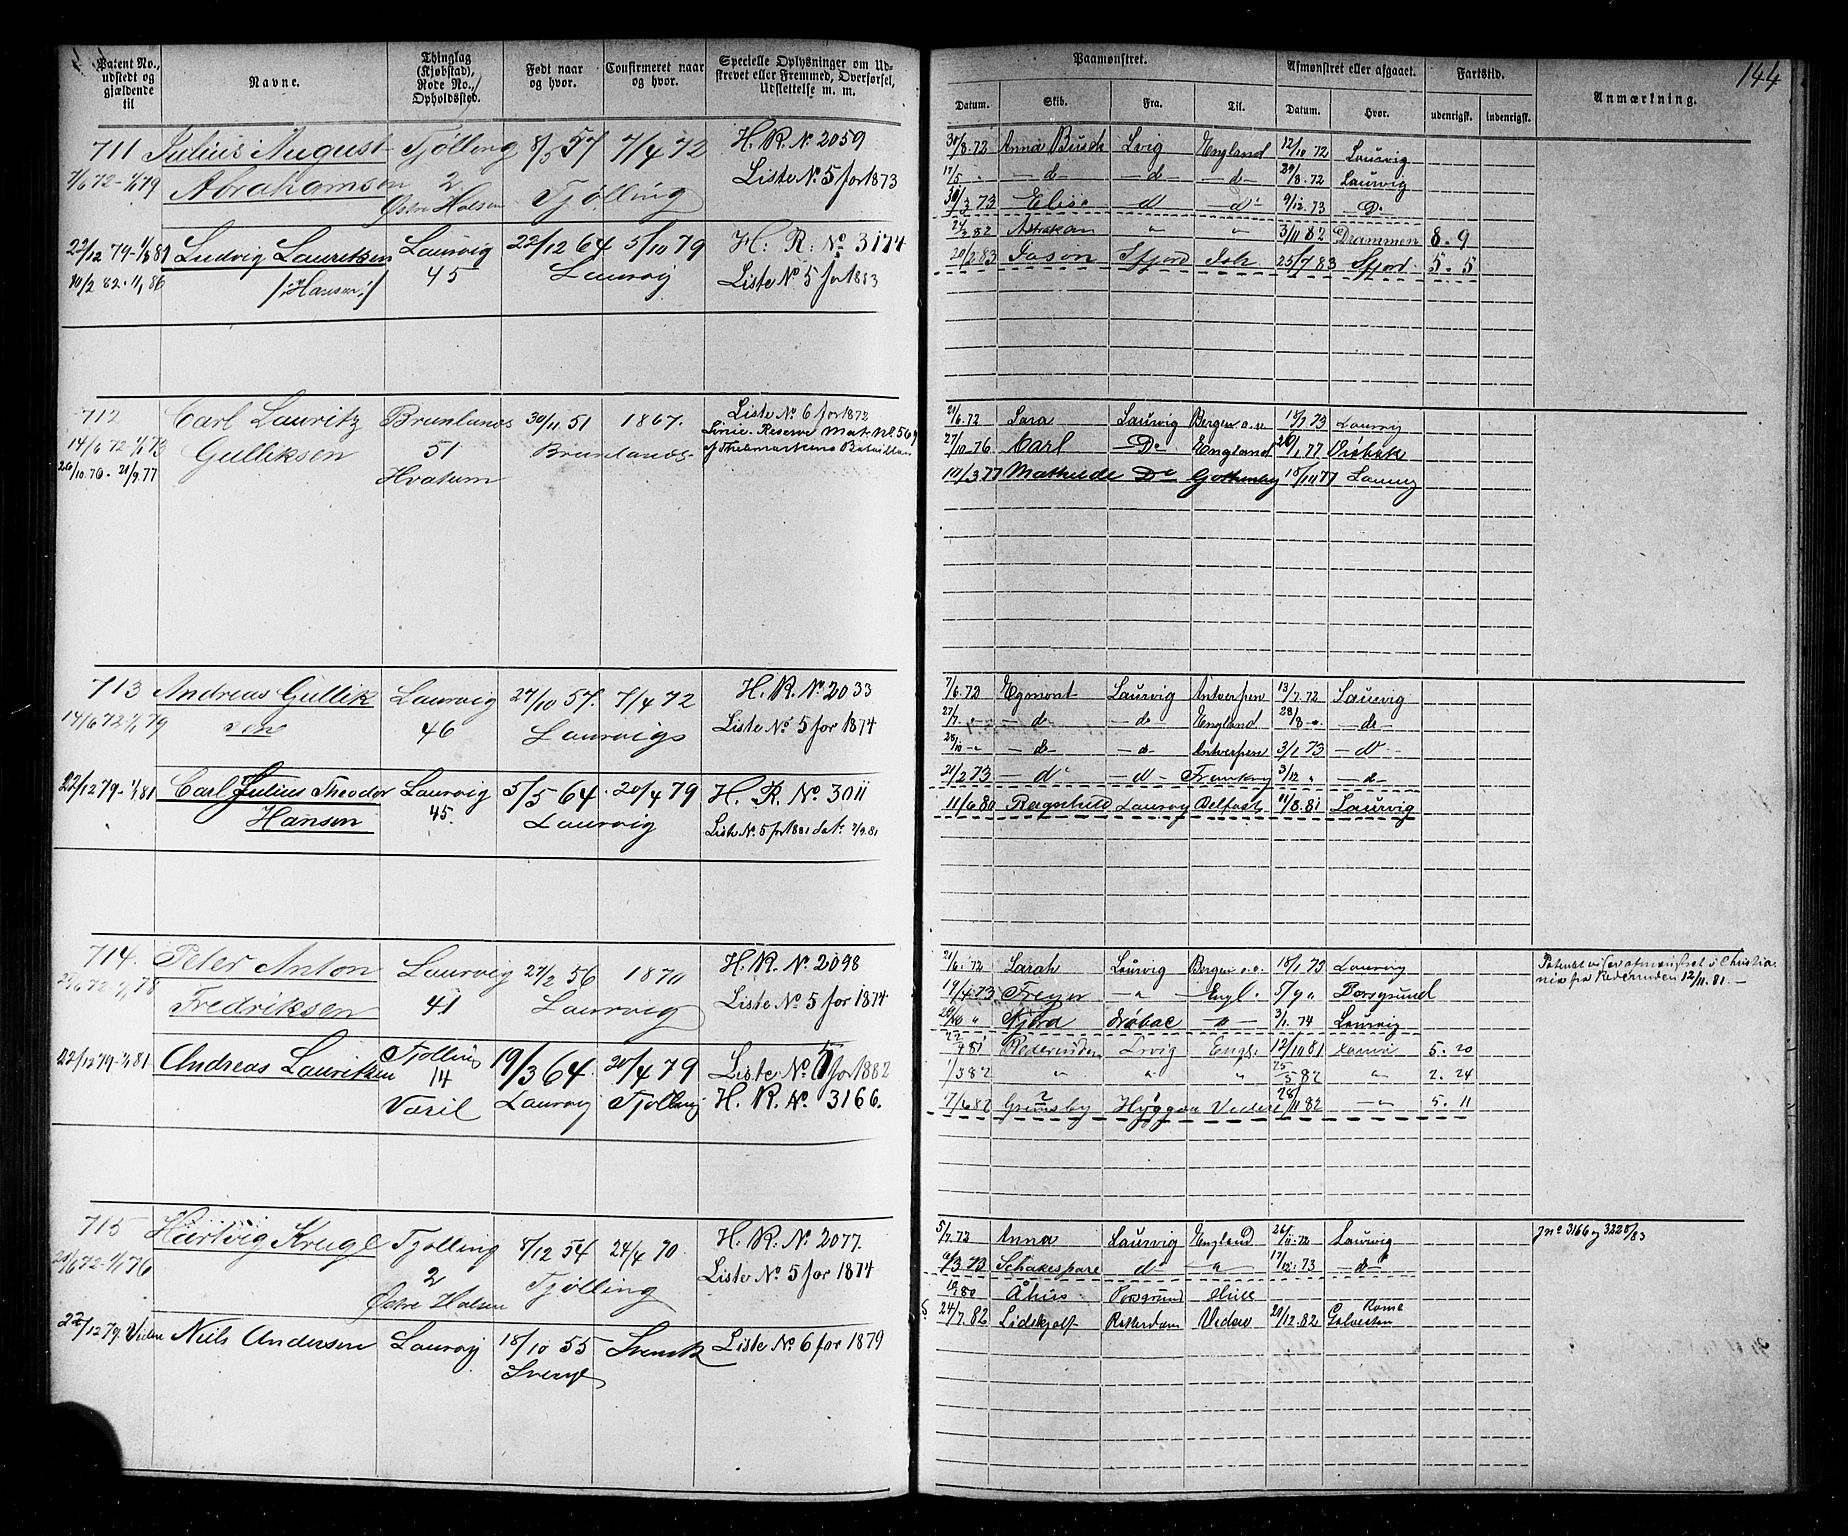 144
Patent No., udstedt og gjældende til
Navne.
Thinglag (Kjøbstad), Rode No., Opholdssted.
Født naar og hvor.
Confirmeret naar og hvor.
Specielle Oplysninger om Udskrevet eller Fremmed, Overførsel, Udslettelse m. m.
Paamønstret.
Afmønstret eller afgaaet.
Fartstid.
Anmærkning.
Datum. Skib. Fra. Til. Datum. Hvor. udenrigsk. indenrigsk.
711 Julius August Tjølling 8/3 57 7/4 72 H. R. No 2059
7/6 72 - 1/1 79 Abrahamsen 2 Tjølling Liste No 5 for 1873
Østre Halsen
30/8.72 Anna Busch Lvig England 12/10 72 Laurvig
17/5 " - d - - d - - d - 29/8.72 Laurvig
30/3 73 Elise d d 9/12.73 Do
22/12 79 - 1/8 81 Ludvig Lauritsen Laurvig 22/12 64 5/10 79 H. R. No 3174
/:Hansen:/ 45 Laurvig Liste No 5 for 1883
2/2 82 Astrakan " " 3/11 82 Drammen 8. 9
20/2 83 Jason Sfjord 25/7 83 Sfjord 5. 5
712 Carl Lauritz Brunlanes 30/11 51 1867. Liste No 6 for 1872
14/6 72 1/1 73 Gulliksen 51 Brunlanes Linie-Reserve Mat. Nl. 569
26/10.76 - 21/9.77 Hvatum af Thelemarkens Bataillon
21/6.72 Sara Laurvig Bergen o.v. 18/1 73 Laurvig
27/10.76 Carl Do England 20/1 77 Drøbak
14/3 77 Mathilde Do Gothenbg 15/10 77 Laurvig
713 Andreas Gullik Laurvig 27/10 57. 7/4 72 H. R. No 2033
14/6 72 1/1 79 sen 46 Laurvigs Liste No 5 for 1874
7/6.72 Egmont Laurvig Antwerpen 13/7.72 Laurvig
27/7 - " - d - - d - England 28/8 - " - d -
28/10 - " - d - - d - Antwerpen 3/1 73 - d -
21/2 73 - d - - d - Frankrig 3/12 " - d -
22/12 79 - 1/1 81 Carl Julius Theodor Laurvig 5/5 64 20/4 79 H. R. No 3011
Hansen 45. Laurvig Liste No 5 for 1881
11/6 80 Bergschild Laurvig Belfast 11/8.81 Laurvig
714. Peter Anton Laurvig 27/2 56 1870 H. R. No 2098
Fredriksen 41 Laurvig Liste No 5 for 1874
21/6.72 Sarah Laurvig Bergen o.v. 18/1 73 Laurvig
19/4 73 Freyer - " - Engl. 5/9 " Porsgrund
20/10 " Njord Drøbac 3/1 74 Laurvig
22/12 79 - 1/1 81 Andreas Lauritzen Tjølling 19/3 64. 20/4 79 Liste No 5 for 1882
14 Laurvig Tjølling H. R. No 3166.
Varil
Lvig Engl. 12/10 81 5. 20
1/3 82 " " " 25/5 82 " 2. 24
7/6 82 Grimsby Hyggen Videre 28/11 82 - " 5. 11
12/11 81. -
715 Hartvig Krugl Tjølling 8/12 54 24/4 70. H. R. No 2077.
2 Tjølling Liste No 5 for 1874
Østre Halsen
5/7.72 Anna Laurvig England 26/11.72 Laurvig
6/3 73 Schakespare d - " - 17/12.73 - d -
80 Åhus Porsgrund Hull
22/12 79. Videre Niels Andersen Laurvig 18/10 55 Svensk Liste No 6 for 1879
Sverge
24/7.82 Lidskjalf Rotterdam Videre 29/12.82 Galveston
Jno 3166 og 3225/83